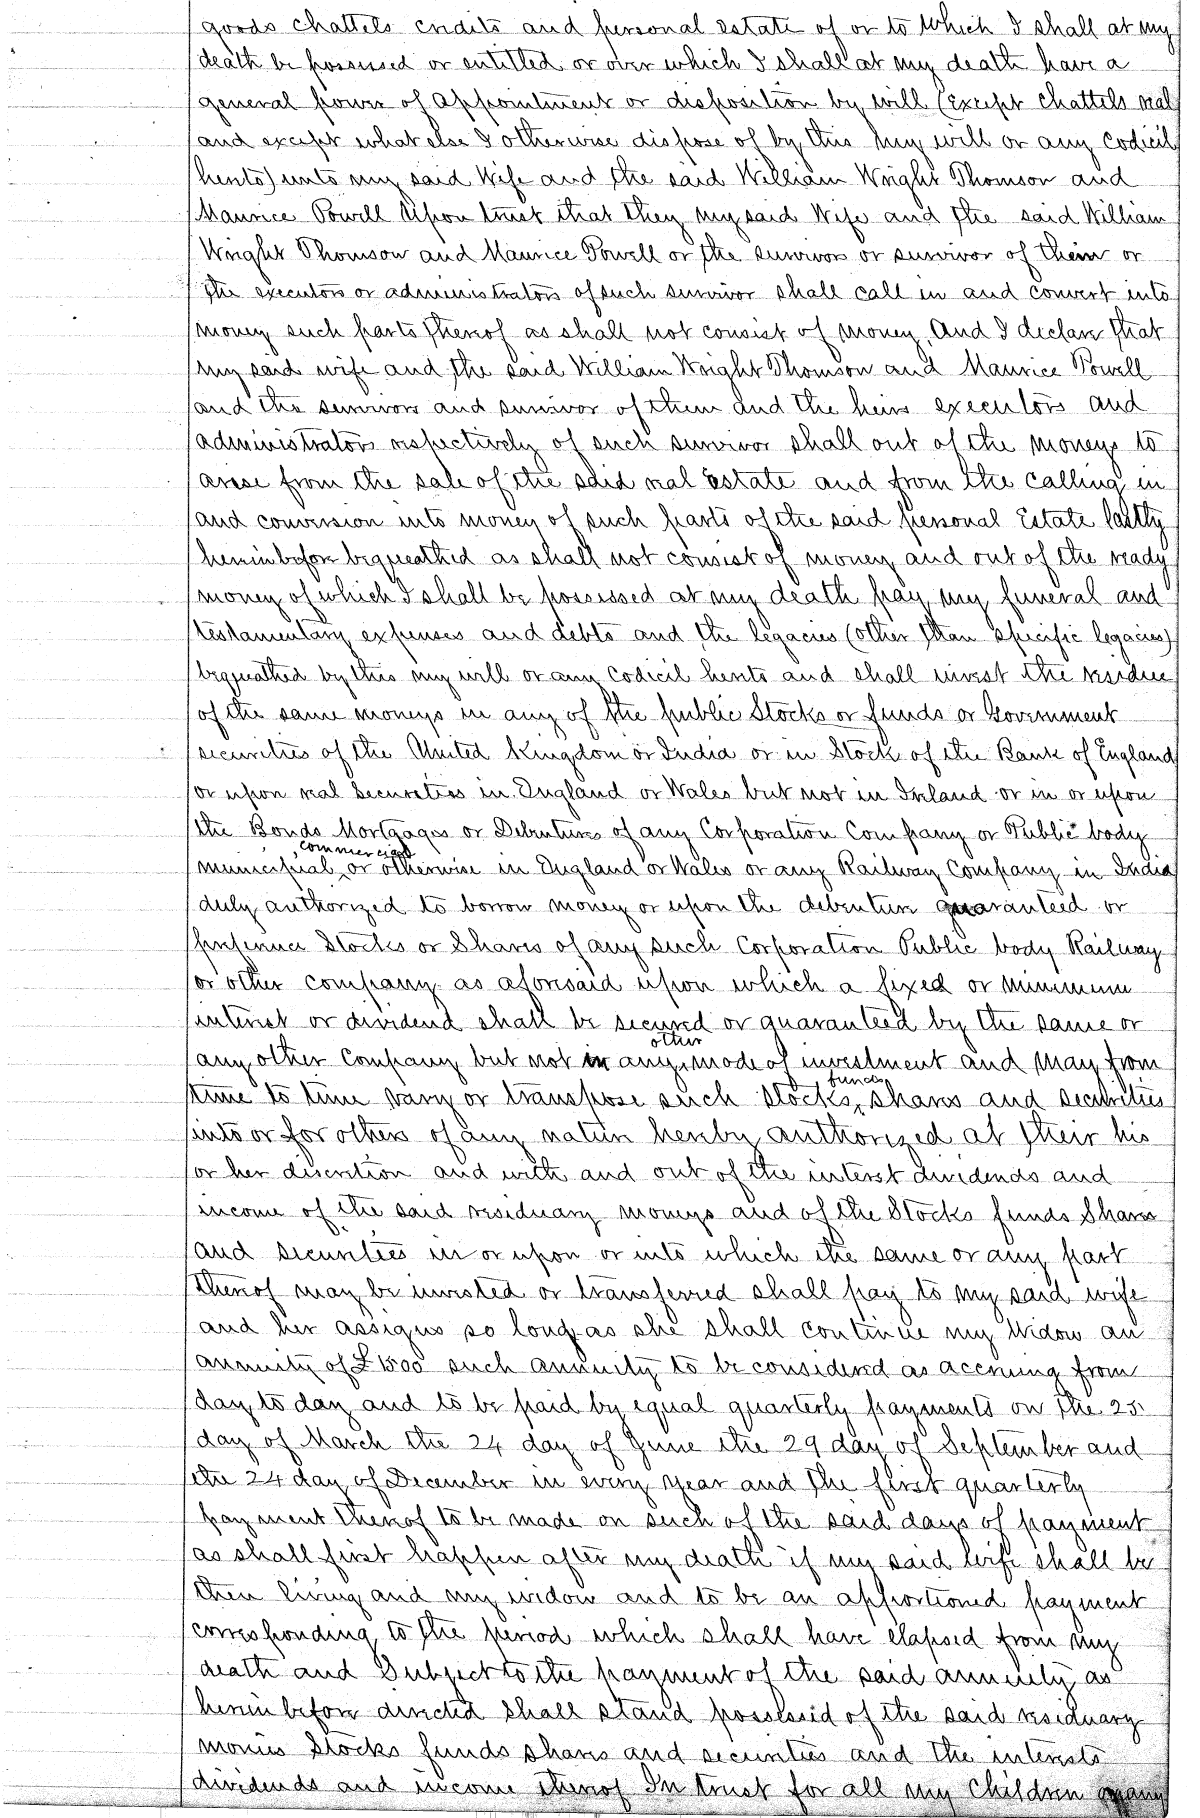 goods chattels credits and personal estate of or to which I shall at my
death be possessed or entitled or over which I shall at my death have a
general power of appointment or disposition by will (except chattels real
and except what else I otherwise dispose of by this my will or any codicil
hereto) unto my said Wife and the said William Wright Thomson and
Maurice Powell Upon trust that they my said Wife and the said William
Wright Thomson and Maurice Powell or the survivors or survivor of them or
the executors or administrators of such survivor shall call in and convert into
money such parts thereof as shall not consist of money And I declare that
my said wife and the said William Wright Thomson and Maurice Powell
and the survivors and survivor of them and the heirs executors and
administrators respectively of such survivor shall out of the moneys to
arise from the sale of the said real Estate and from the calling in
and conversion into money of such parts of the said personal Estate lastly
hereinbefore bequeathed as shall not consist of money and out of the ready
money of which I shall be possessed at my death pay my funeral and
testamentary expenses and debts and the legacies (other than specific legacies)
bequeathed by this my will or any Codicil hereto and shall invest the residue
of the same moneys in any of the public Stocks or funds or Government
securities of the United Kingdom or India or in Stock of the Bank of England
or upon real Securities in England or Wales but not in Ireland or in or upon
the Bonds Mortgages or Debentures of any Corporation Company or Public body
municipal commercial or otherwise in England or Wales or any Railway Company in India
duly authorized to borrow money or upon the debenture guaranteed or
preference Stocks or Shares of any such Corporation Public body Railway
or other company as aforesaid upon which a fixed or minimum
interest or dividend shall be secured or guaranteed by the same or
any other Company but not in any other mode of investment and may from
time to time vary or transpose such stocks funds shares and securities
into or for others of any nature hereby authorized at their his
or her discretion and with and out of the interest dividends and
income of the said residuary moneys and of the Stocks funds Shares
and securities in or upon or into which the same or any part
thereof may be invested or transferred shall pay to my said wife
and her assigns so long as she shall continue my Widow an
annuity of £1500 such annuity to be considered as accruing from
day to day and to be paid by equal quarterly payments on the 25
day of March the 24 day of June the 29 day of September and
the 24 day of December in every year and the first quarterly
payment thereof to be made on such of the said days of payment
as shall first happen after my death if my said wife shall be
then living and my widow and to be an apportioned payment
corresponding to the period which shall have elapsed from my
death and Subject to the payment of the said annuity as
herein before directed shall stand possessed of the said residuary
monies Stocks funds shares and securities and the interests
dividends and income thereof In trust for all my Children or any